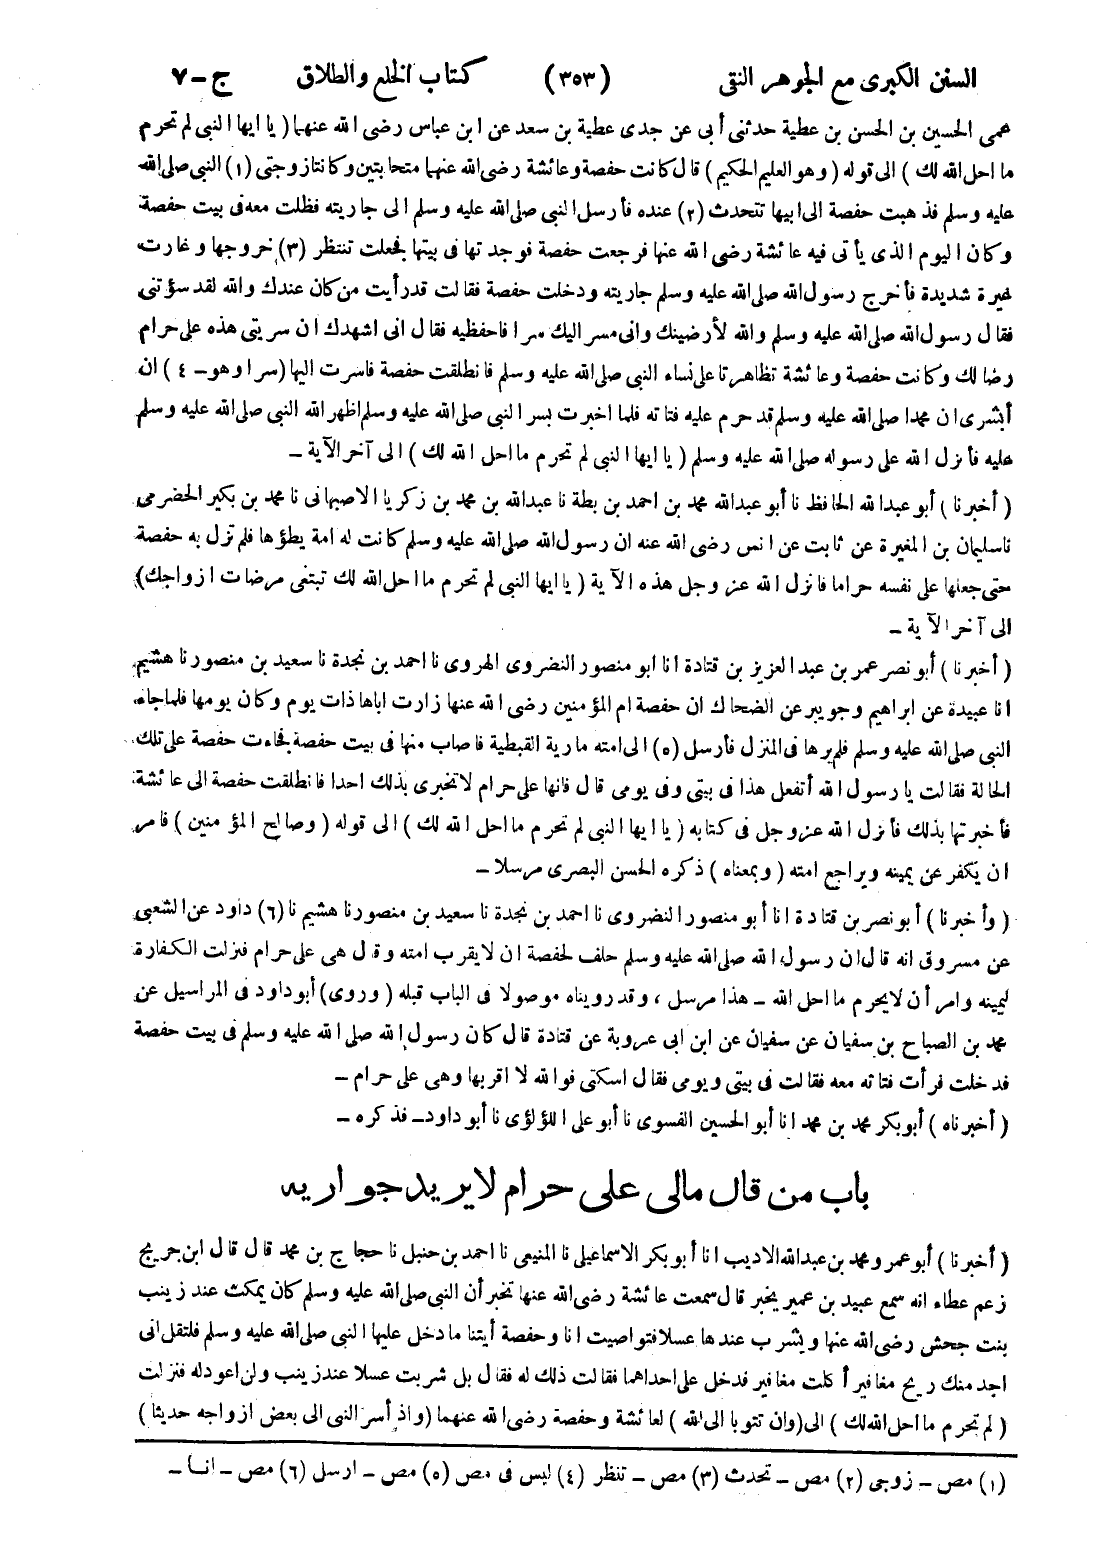 السنن الكبرى مع الجوهر النقى (٣٥٣) كتاب الخلع والطلاق ج-٧
عمى الحسين بن الحسن بن عطية حدثنى أبى عن جدى عطية بن سعد عن ابن عباس رضى الله عنهما ( يا ايها النبى لم تحرم
ما احل الله لك ) الى قوله ( وهو العليم الحكيم ) قال كانت حفصة وعائشة رضى الله عنهما متحابتين وكانتا زوجتى (١) النبى صلى الله
عليه وسلم فذهبت حفصة الى ابيها تتحدث (٢) عنده فأرسل النبى صلى الله عليه وسلم الى جاريته فظلت معه فى بيت حفصة
وكان اليوم الذى يأتى فيه عائشة رضى الله عنها فرجعت حفصة فوجدتها فى بيتها فجعلت تنتظر (٣) خروجها وغارت
غيرة شديدة فأخرج رسول الله صلى الله عليه وسلم جاريته ودخلت حفصة فقالت قد رأيت من كان عندك والله لقد سؤتنى
فقال رسول الله صلى الله عليه وسلم والله لأرضينك وانى مسر اليك سرا فاحفظيه فقال انى اشهدك ان سريتى هذه على حرام
رضا لك وكانت حفصة وعائشة تظاهرتا على نساء النبى صلى الله عليه وسلم فانطلقت حفصة فاسرت اليها (سرا وهو - ٤ ) ان
أبشرى ان محمدا صلى الله عليه وسلم قد حرم عليه فتاته فلما اخبرت بسر النبى صلى الله عليه وسلم اظهر الله النبى صلى الله عليه وسلم
عليه فأنزل الله على رسوله صلى الله عليه وسلم ( يا ايها النبى لم تحرم ما احل الله لك ) الى آخر الآية -
( أخبرنا ) أبو عبد الله الحافظ نا أبو عبدالله محمد بن احمد بن بطة نا عبدالله بن محمد بن زكريا الاصبهانى نا محمد بن بكير الحضرمى
نا سليمان بن المغيرة عن ثابت عن انس رضى الله عنه ان رسول الله صلى الله عليه وسلم كانت له امة يطؤها فلم تزل به حفصة
حتى جعلها على نفسه حراما فانزل الله عز وجل هذه الآية ( يا ايها النبى لم تحرم ما احل الله لك تبتغى مرضات ازواجك)
الى آخر الآية -
( أخبرنا ) أبو نصر عمر بن عبد العزيز بن قتادة انا ابو منصور النضروى الهروى نا احمد بن نجدة نا سعيد بن منصور نا هشيم
انا عبيدة عن ابراهيم وجويبر عن الضحاك ان حفصة ام المؤمنين رضى الله عنها زارت اباها ذات يوم وكان يومها فلما جاء
النبى صلى الله عليه وسلم فلم يرها فى المنزل فأرسل (٥) الى امته مارية القبطية فاصاب منها فى بيت حفصة فجاءت حفصة على تلك
الحالة فقالت يا رسول الله أتفعل هذا فى بيتى وفى يومى قال فانها على حرام لا تخبرى بذلك احدا فانطلقت حفصة الى عائشة
فأخبرتها بذلك فأنزل الله عز وجل فى كتابه ( يا ايها النبى لم تحرم ما احل الله لك ) الى قوله ( وصالح المؤمنين ) فامر
ان يكفر عن يمينه ويراجع امته ( وبمعناه ) ذكره الحسن البصرى مرسلا -
( وأخبرنا ) أبو نصر بن قتادة انا أبو منصور النضروى نا احمد بن نجدة نا سعيد بن منصور نا هشيم نا (٦) داود عن الشعبى
عن مسروق انه قال ان رسول الله صلى الله عليه وسلم حلف لحفصة ان لا يقرب امته وقال هى على حرام فنزلت الكفارة
ليمينه وامر أن لا يحرم ما احل الله - هذا مرسل ، وقد رويناه موصولا فى الباب قبله ( وروى ) أبو داود فى المراسيل عن
محمد بن الصباح بن سفيان عن سفيان عن ابن ابى عروبة عن قتادة قال كان رسول الله صلى الله عليه وسلم فى بيت حفصة
فدخلت فرأت فتاته معه فقالت فى بيتى ويومى فقال اسكتى فوالله لا اقربها وهى على حرام -
( أخبرناه ) أبو بكر محمد بن محمد انا أبو الحسين الفسوى نا أبو على اللؤلؤى نا أبو داود - فذكره -
باب من قال مالى على حرام لا يريد جواريه
( أخبرنا ) أبو عمرو محمد بن عبدالله الاديب انا أبو بكر الاسماعيلى نا المنيعى نا احمد بن حنبل نا حجاج بن محمد قال قال ابن جريج
زعم عطاء انه سمع عبيد بن عمير يخبر قال سمعت عائشة رضى الله عنها تخبر أن النبى صلى الله عليه وسلم كان يمكث عند زينب
بنت جحش رضى الله عنها ويشرب عندها عسلا فتواصيت انا وحفصة أيتنا ما دخل عليها النبى صلى الله عليه وسلم فلتقل انى
اجد منك ريح مغافير أكلت مغافير فدخل على احداهما فقالت ذلك له فقال بل شربت عسلا عند زينب ولن اعود له فنزلت
( لم تحرم ما احل الله لك ) الى (وان تتوبا الى الله ) لعائشة وحفصة رضى الله عنهما (واذ أسر النبى الى بعض ازواجه حديثا )
(١) مص - زوجى (٢) مص - تحدث (٣) مص - تنظر (٤) ليس فى مص (٥) مص - ارسل (٦) مص - انا -